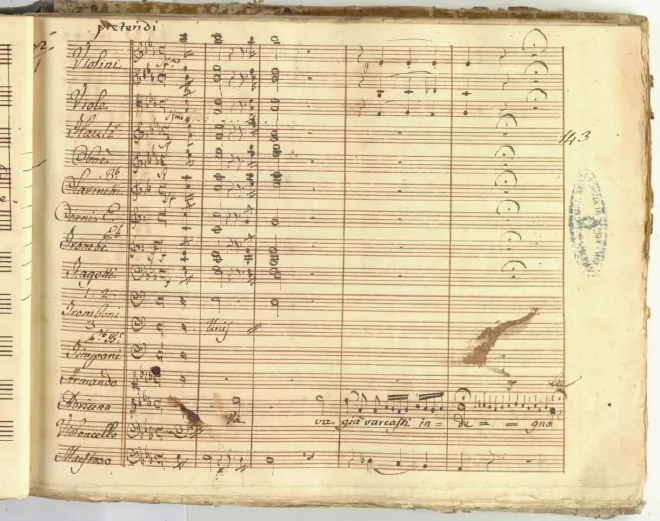 pretendi
Violini
Viole
Flauti
Oboè
Clarinetti
Corni in E
Trombe Eb
Fagotti
1. 2.
Tromboni
3
Unis
Timpani
Armando
Adriano
Va va già varcasti in = de = = gno
Violoncello
Maestoso
143